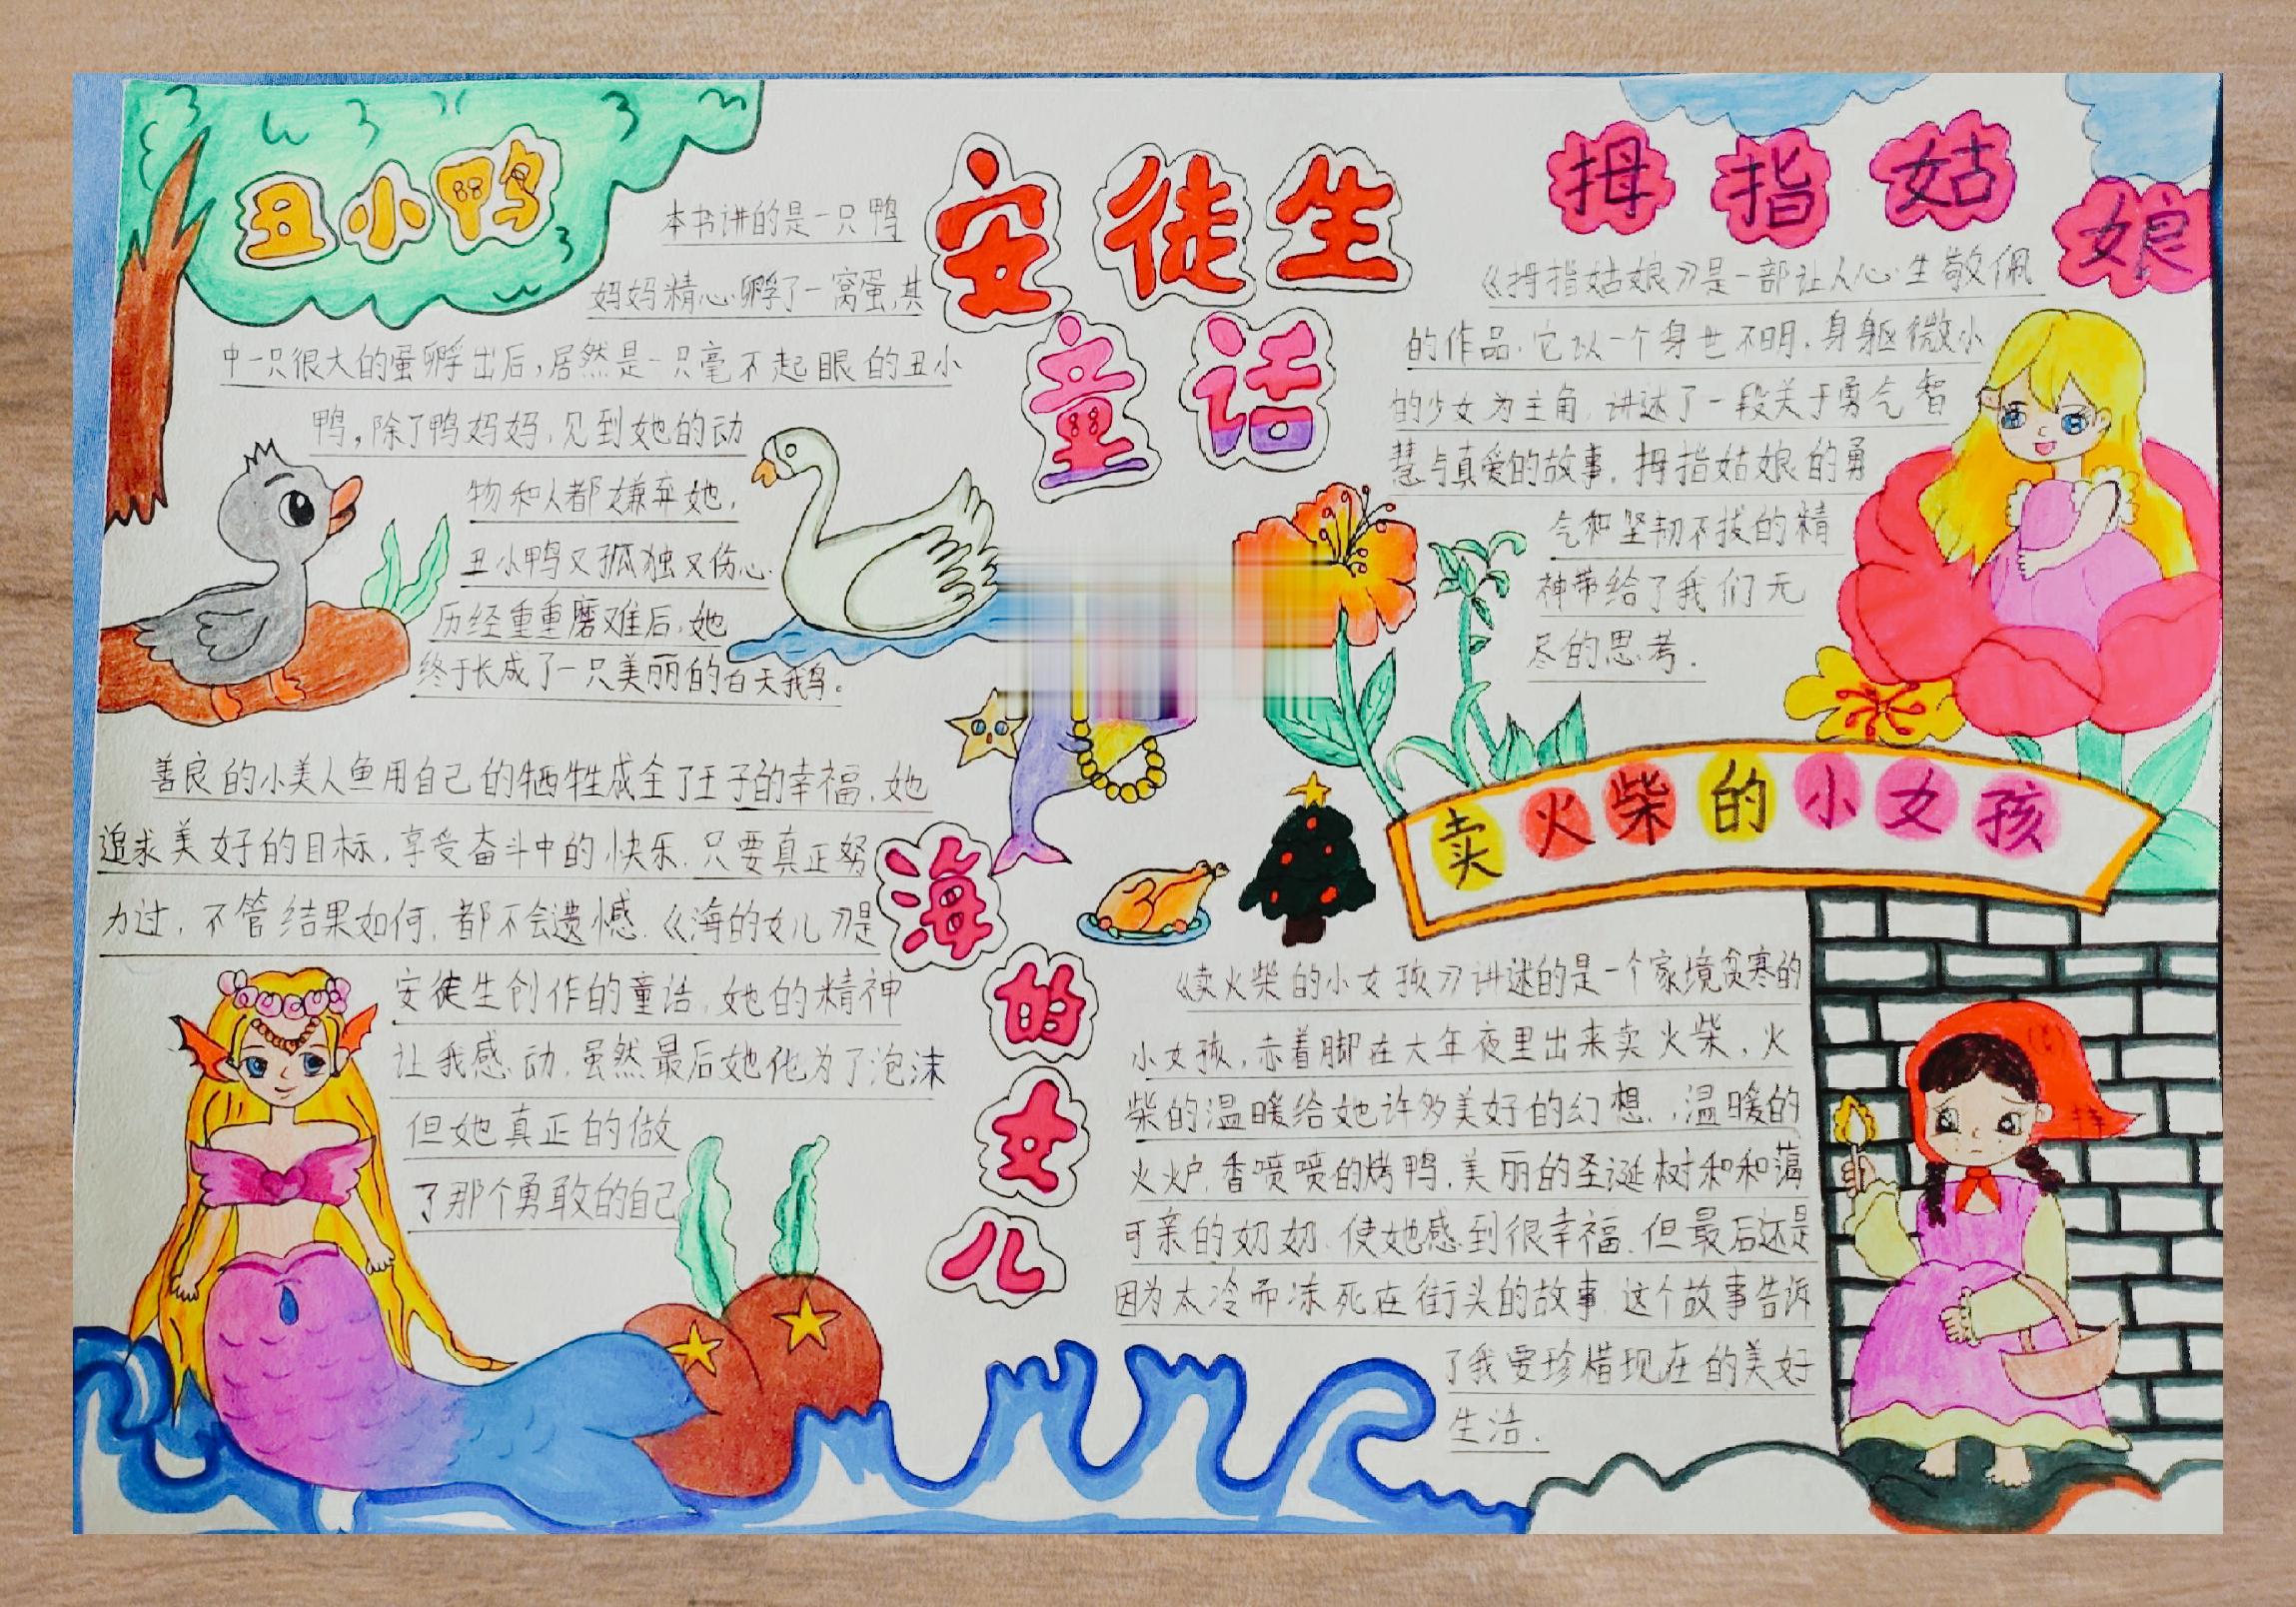 安徒生
童话
丑小鸭
本书讲的是一只鸭
妈妈精心孵了一窝蛋,其
中一只很大的蛋孵出后,居然是一只毫不起眼的丑小
鸭,除了鸭妈妈,见到她的动
物和人都嫌弃她,
丑小鸭又孤独又伤心.
历经重重磨难后,她
终于长成了一只美丽的白天鹅。
拇指姑娘
《拇指姑娘》是一部让人心生敬佩
的作品.它以一个身世不明.身躯微小
的少女为主角.讲述了一段关于勇气智
慧与真爱的故事.拇指姑娘的勇
气和坚韧不拔的精
神带给了我们无
尽的思考.
海的女儿
善良的小美人鱼用自己的牺牲成全了王子的幸福.她
追求美好的目标.享受奋斗中的快乐.只要真正努
力过.不管结果如何.都不会遗憾.《海的女儿》是
安徒生创作的童话.她的精神
让我感动.虽然最后她化为了泡沫
但她真正的做
了那个勇敢的自己
卖火柴的小女孩
《卖火柴的小女孩》讲述的是一个家境贫寒的
小女孩,赤着脚在大年夜里出来卖火柴,火
柴的温暖给她许多美好的幻想.,温暖的
火炉.香喷喷的烤鸭.美丽的圣诞树和和蔼
可亲的奶奶.使她感到很幸福.但最后还是
因为太冷而冻死在街头的故事.这个故事告诉
了我要珍惜现在的美好
生活.